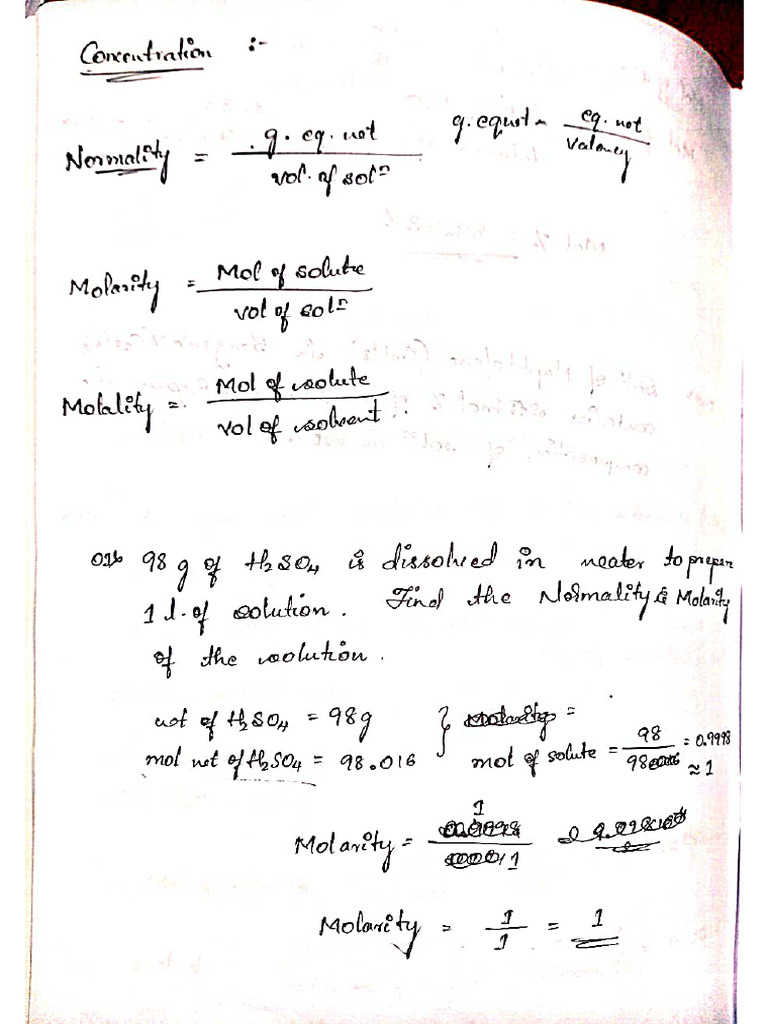 Concentration :-
Normality = g. eq. wt / vol. of solⁿ
g. eq wt = eq. wt / Valancy
Molarity = Mol of solute / vol of solⁿ
Molality = Mol of solute / vol of solvent.
98 g of H2SO4 is dissolved in water to
1 l. of solution. Find the Normality & Molarity
of the solution.
wt of H2SO4 = 98g
mol wt of H2SO4 = 98.016
Molarity =
mol of solute = 98 / 98 = 0.9998
≈ 1
Molarity = 1 / 1
Molarity = 1 / 1 = 1